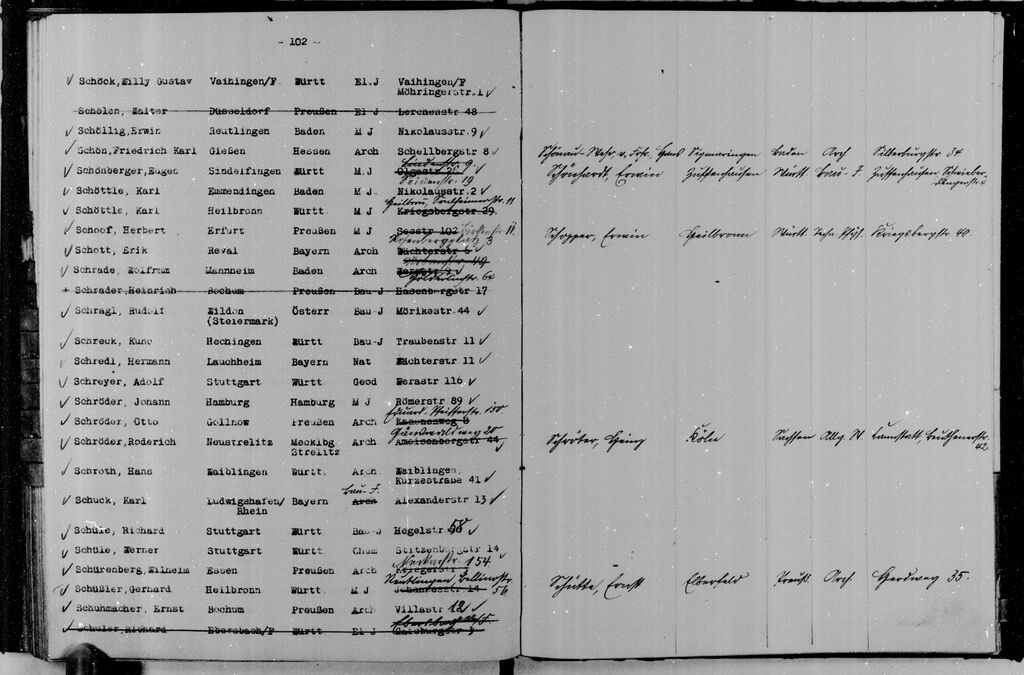 - 102 -
✓ Schöck,Willy Gustav Vaihingen/F. Württ El.J Vaihingen/F
Möhringerstr.1 ✓
Schölch, Walter Düsseldorf Preußen El J Lerchenstr 48
✓ Schöllig,Erwin Reutlingen Baden M J Nikolausstr.9 ✓
✓ Schön,Friedrich Karl Gießen Hessen Arch Schellbergstr 8 ✓
Lindenstr. 9.
✓ Schönberger,Eugen Sindelfingen Württ M.J Olgastr
19
✓ Schöttle, Karl Emmendingen Baden M J. Nikolausstr.2 ✓
Heilbronn, Sontheimerstr. 11
✓ Schöttle, Karl Heilbronn Württ M.J Kriegsbergstr 29.
✓ Schoof, Herbert Erfurt Preußen M J Seestr 102
✓ Schott, Erik Reval Bayern Arch Wächterstr
✓ Schrade, Wolfram Mannheim Baden Arch
Hölderlinstr. 6a
+ Schrader,Heinrich Bochum Preußen Bau-J Hasenbergstr 17
✓ Schragl, Rudolf Wildon Österr Bau-J Mörikestr.44 ✓
(Steiermark)
✓ Schreck, Kuno Hechingen Württ Bau-J Traubenstr 11 ✓
✓ Schredl, Hermann Lauchheim Bayern Nat Wächterstr 11 ✓
✓ Schreyer, Adolf Stuttgart Württ Geod Werastr 116 ✓
✓ Schröder, Johann Hamburg Hamburg M J Römerstr 89 ✓
Eduard-Pfeifferstr. 150
✓ Schröder, Otto Gollnow Preußen Arch Kanonenweg 8
Gänswaldweg 20
✓ Schröder,Roderich Neustrelitz Mecklbg Arch Ameisenbergstr 44
Strelitz
✓ Schroth, Hans Waiblingen Württ. Arch Waiblingen,
Kurzestraße 41 ✓
Bau-J.
✓ Schuck, Karl Ludwigshafen/ Bayern Arch Alexanderstr 13 ✓
Rhein
✓ Schüle, Richard Stuttgart Württ Bau-J Hegelstr.58 ✓
✓ Schüle, Werner Stuttgart Württ. Chem Stitzenbergstr 14 ✓
Neckarstr. 154
✓ Schürenberg,Wilhelm Essen Preußen Arch Kriegerstr
Reutlingen, Bellinostr.
✓ Schüßler,Gerhard Heilbronn Württ M.J Johannesstr 14 56
✓ Schuhmacher, Ernst Bochum Preußen Arch Villastr 12 ✓
✓ Schuler,Richard Ebersbach/F Württ El J Gaisburgstr
Sigmaringen Baden Arch Silberburgstr. 84
Schönhardt, Erwin Zuffenhausen Württ Bau J. Zuffenhausen
Schopper, Erwin Heilbronn Württ Techn. Phys. Kriegsbergstr 40.
Schröter, Heinz Köln Sachsen Allg. W. Cannstatt,
42.
Schütte, Ernst Elberfeld Preuß. Arch. Herdweg 35.